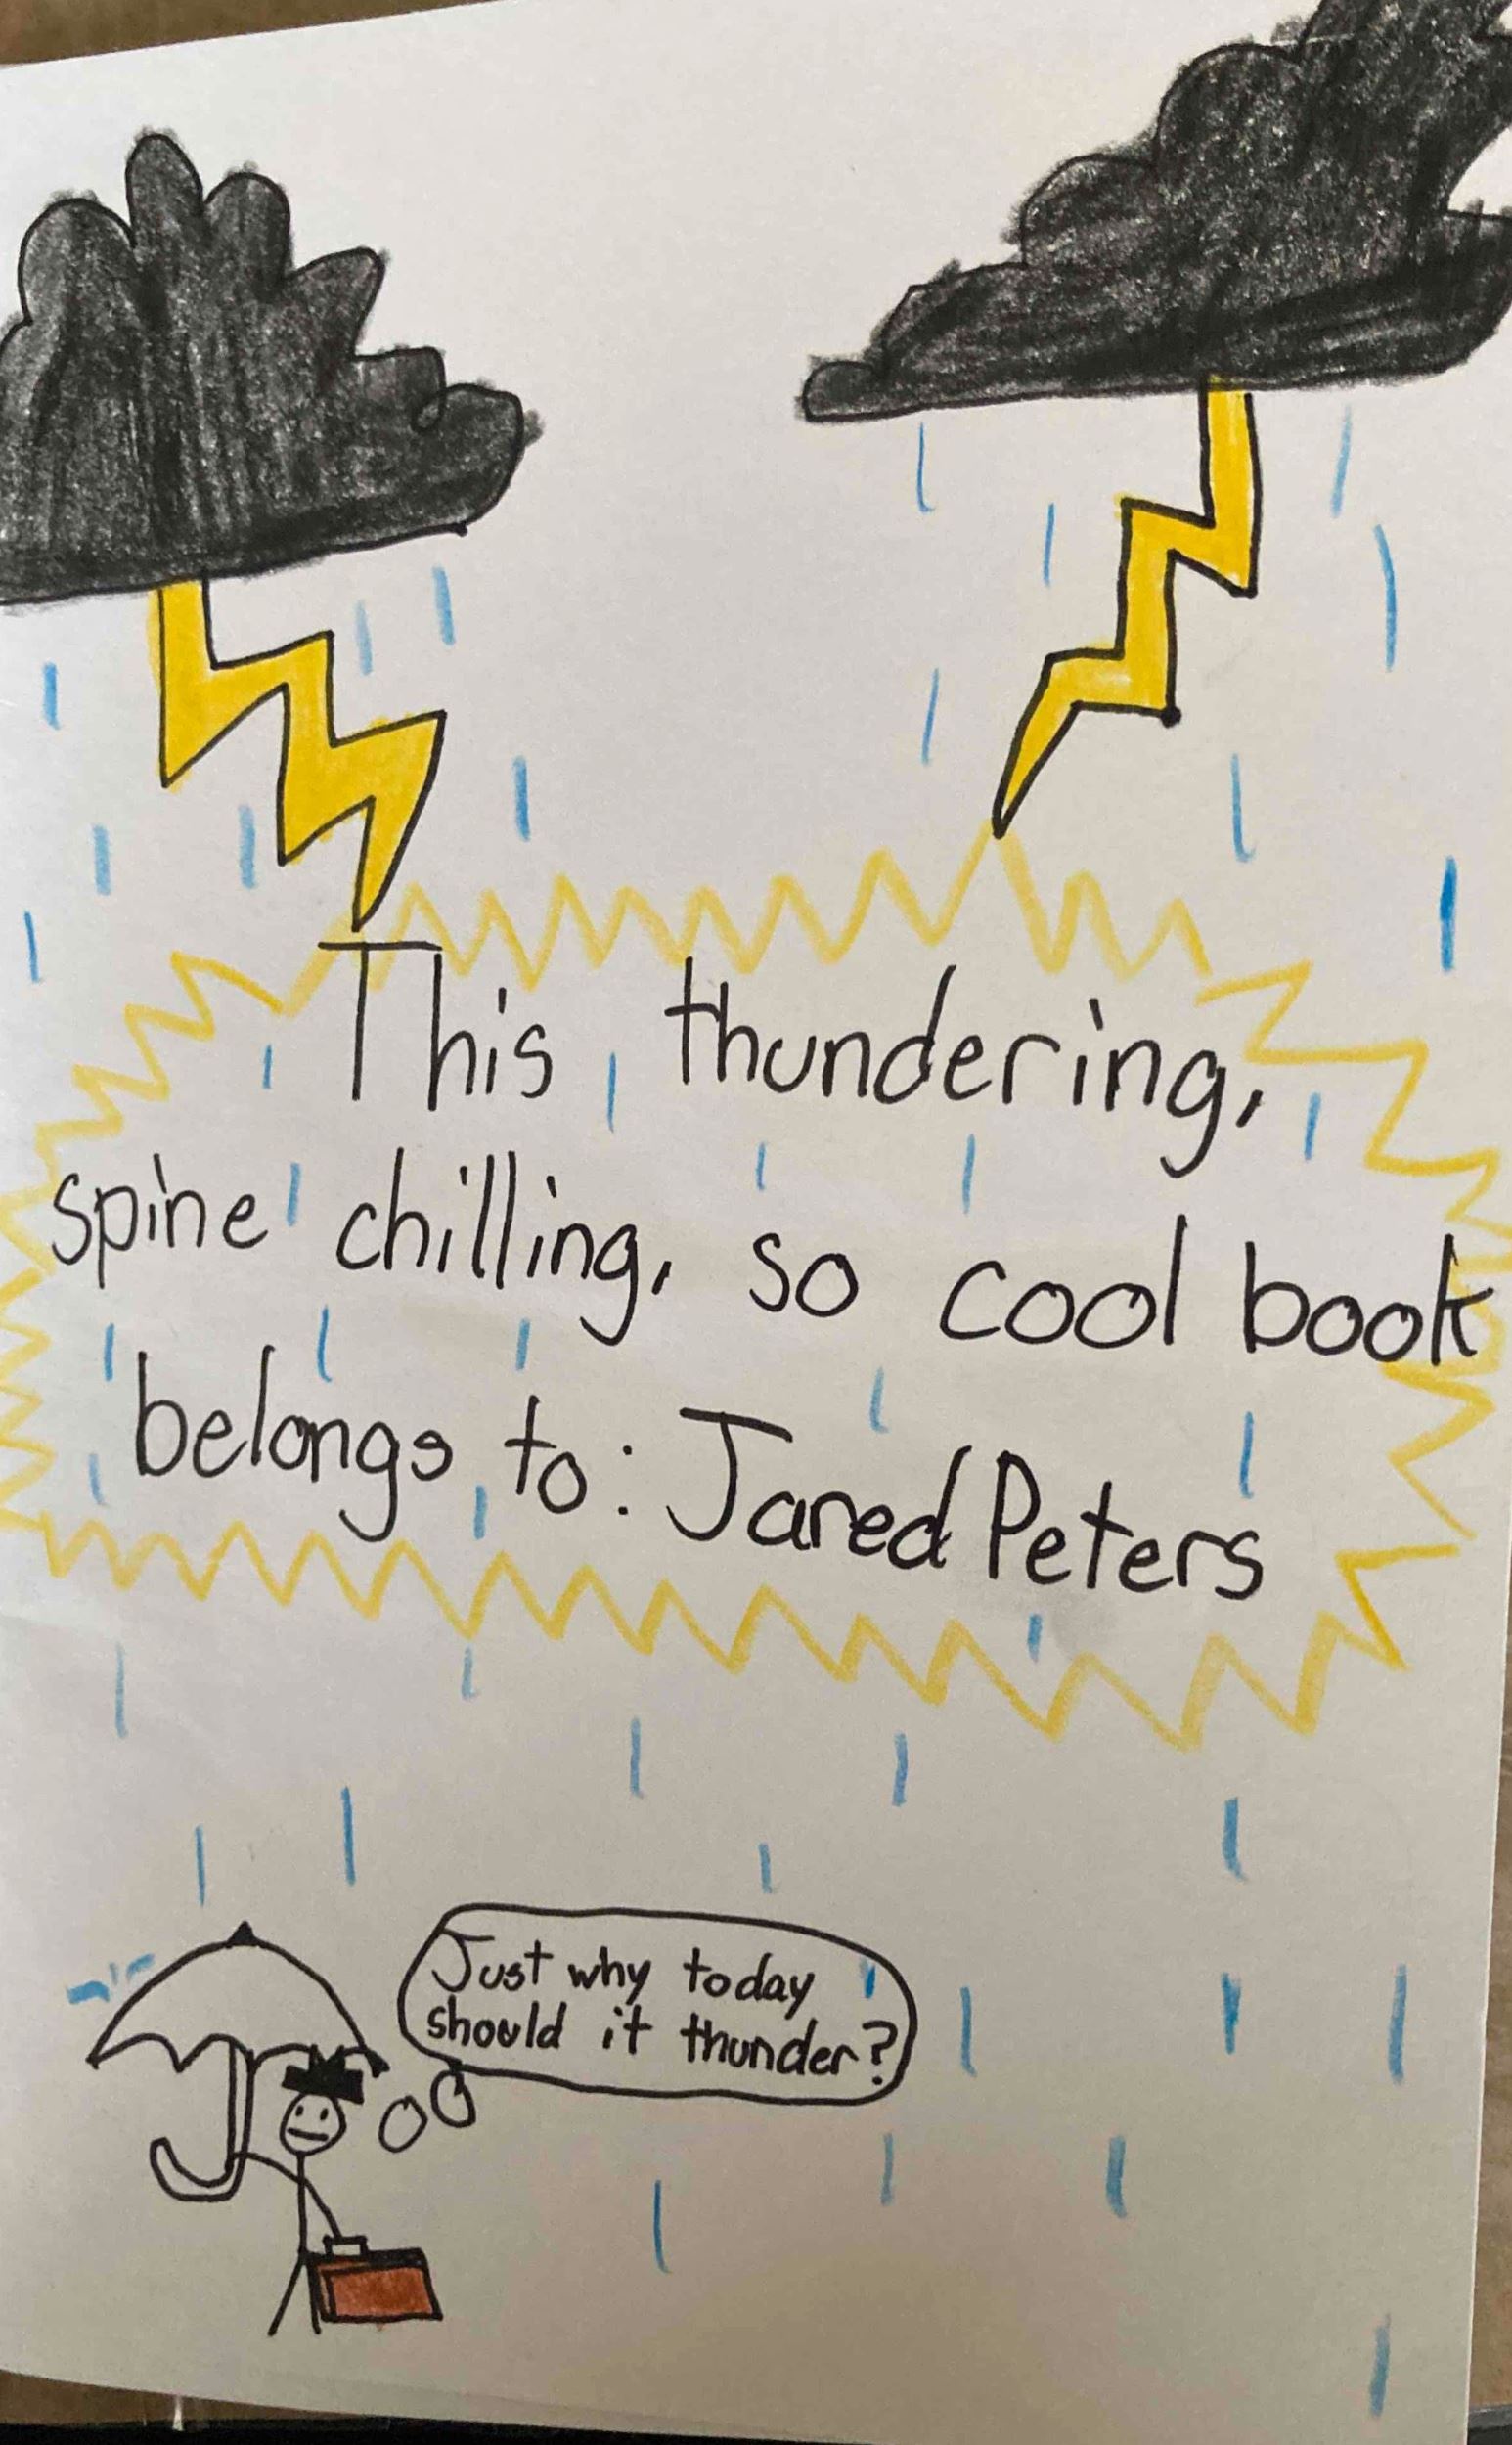 This thundering,
spine chilling, so cool book
belongs to: Jared Peters
Just why today
should it thunder?